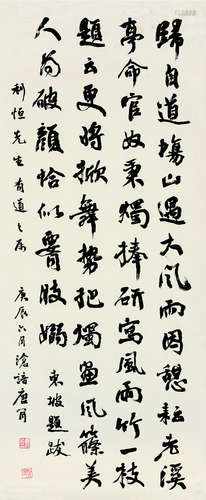 歸自道塲山遇大風雨因憩耘老溪
亭命官奴秉燭捧研寫風雨竹一枝
題云更將掀舞勢把燭畫風篠美
人為破顏恰似腰肢嫋 東坡題跋
利恒先生有道之属
庚辰六月滄諳唐肎